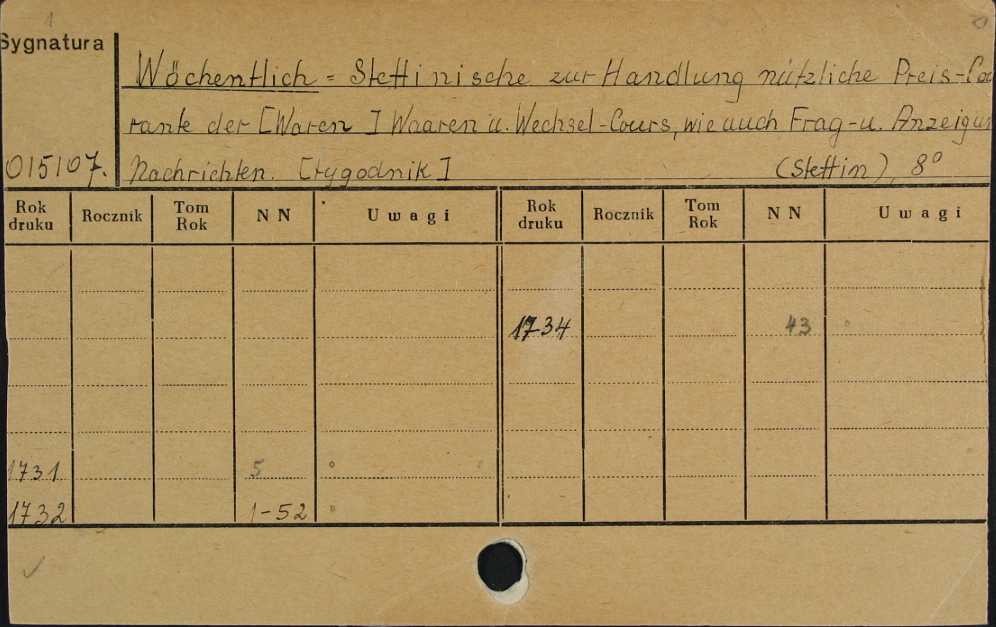 1
Sygnatura
Wöchentlich = Stettinische zur Handlung nützliche Preis-Cou
rante der [Waren] Waaren u. Wechsel-Cours, wie auch Frag- u. Anzeigun
015107. Nachrichten. [tygodnik] (Stettin), 8°
Rok druku Rocznik Tom Rok NN Uwagi Rok druku Rocznik Tom Rok NN Uwagi
1734 43
1731 5
1732 1-52